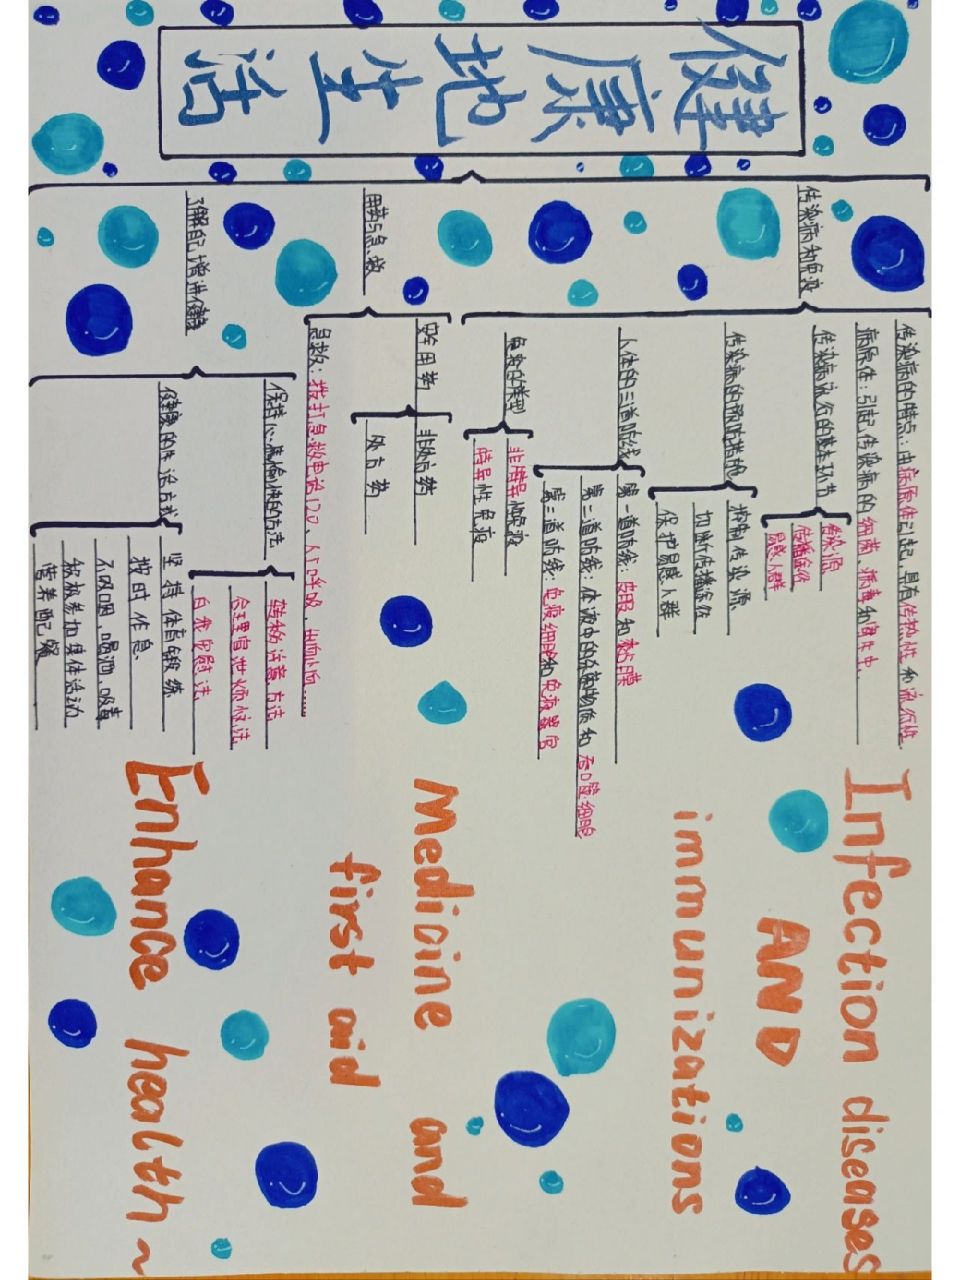 健康地生活
传染病和免疫
传染病的特点:由病原体引起,具有传染性和流行性
病原体:引起传染病的细菌、病毒和寄生虫
传染病流行的基本环节
传染源
传播途径
易感人群
传染病的预防措施
控制传染源
切断传播途径
保护易感人群
人体的三道防线
第一道防线:皮肤和黏膜
第二道防线:体液中的杀菌物质和吞噬细胞
第三道防线:免疫细胞和免疫器官
免疫的类型
非特异性免疫
特异性免疫
用药与急救
安全用药
非处方药
处方药
急救:拨打急救电话120、人工呼吸、出血止血……
了解自己增进健康
保持心情愉快的方法
转移注意方法
合理宣泄烦恼法
自我安慰法
健康的生活方式
坚持体育锻炼
按时作息
不吸烟、喝酒、吸毒
积极参加集体活动
营养配餐
Infection diseases
AND
immunizations
Medicine and
first aid
Enhance health~